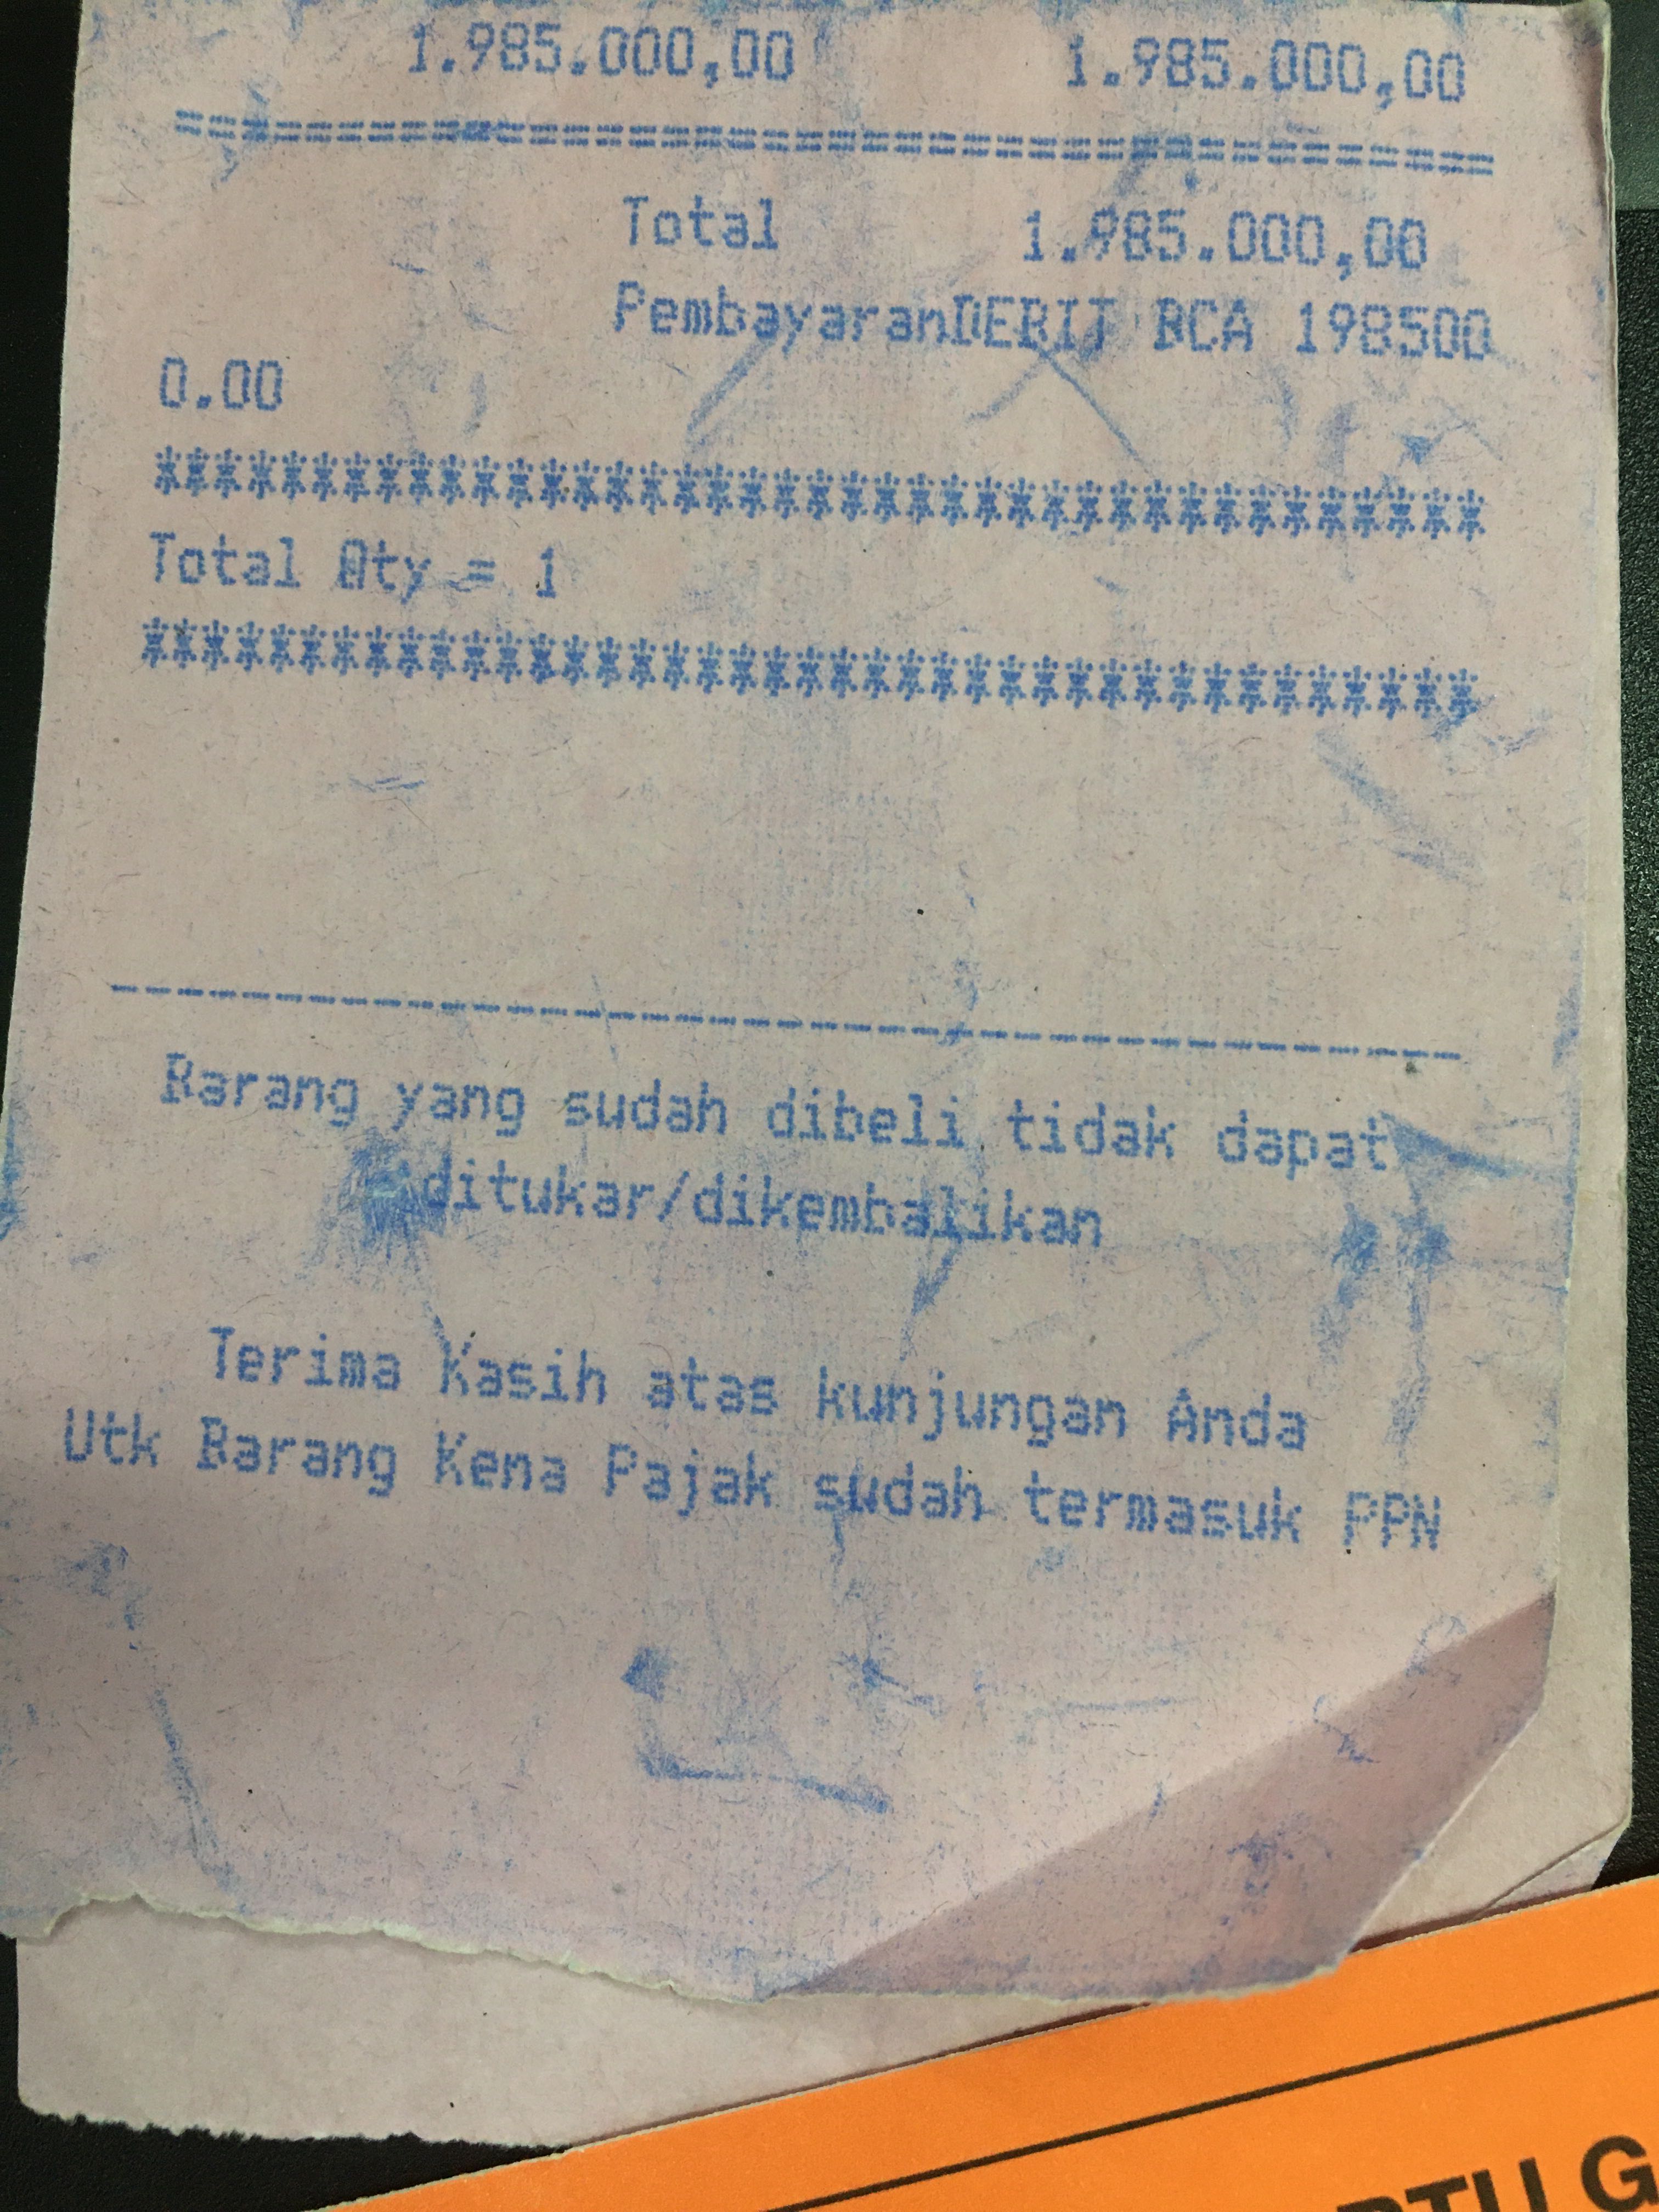 1.985.000,00 1.985.000,00
================================================
Total 1.985.000,00
PembayaranDEBIT BCA 198500
0.00
****************************************
Total Qty = 1
****************************************
----------------------------------------
Barang yang sudah dibeli tidak dapat
ditukar/dikembalikan
Terima Kasih atas kunjungan Anda
Utk Barang Kena Pajak sudah termasuk PPN